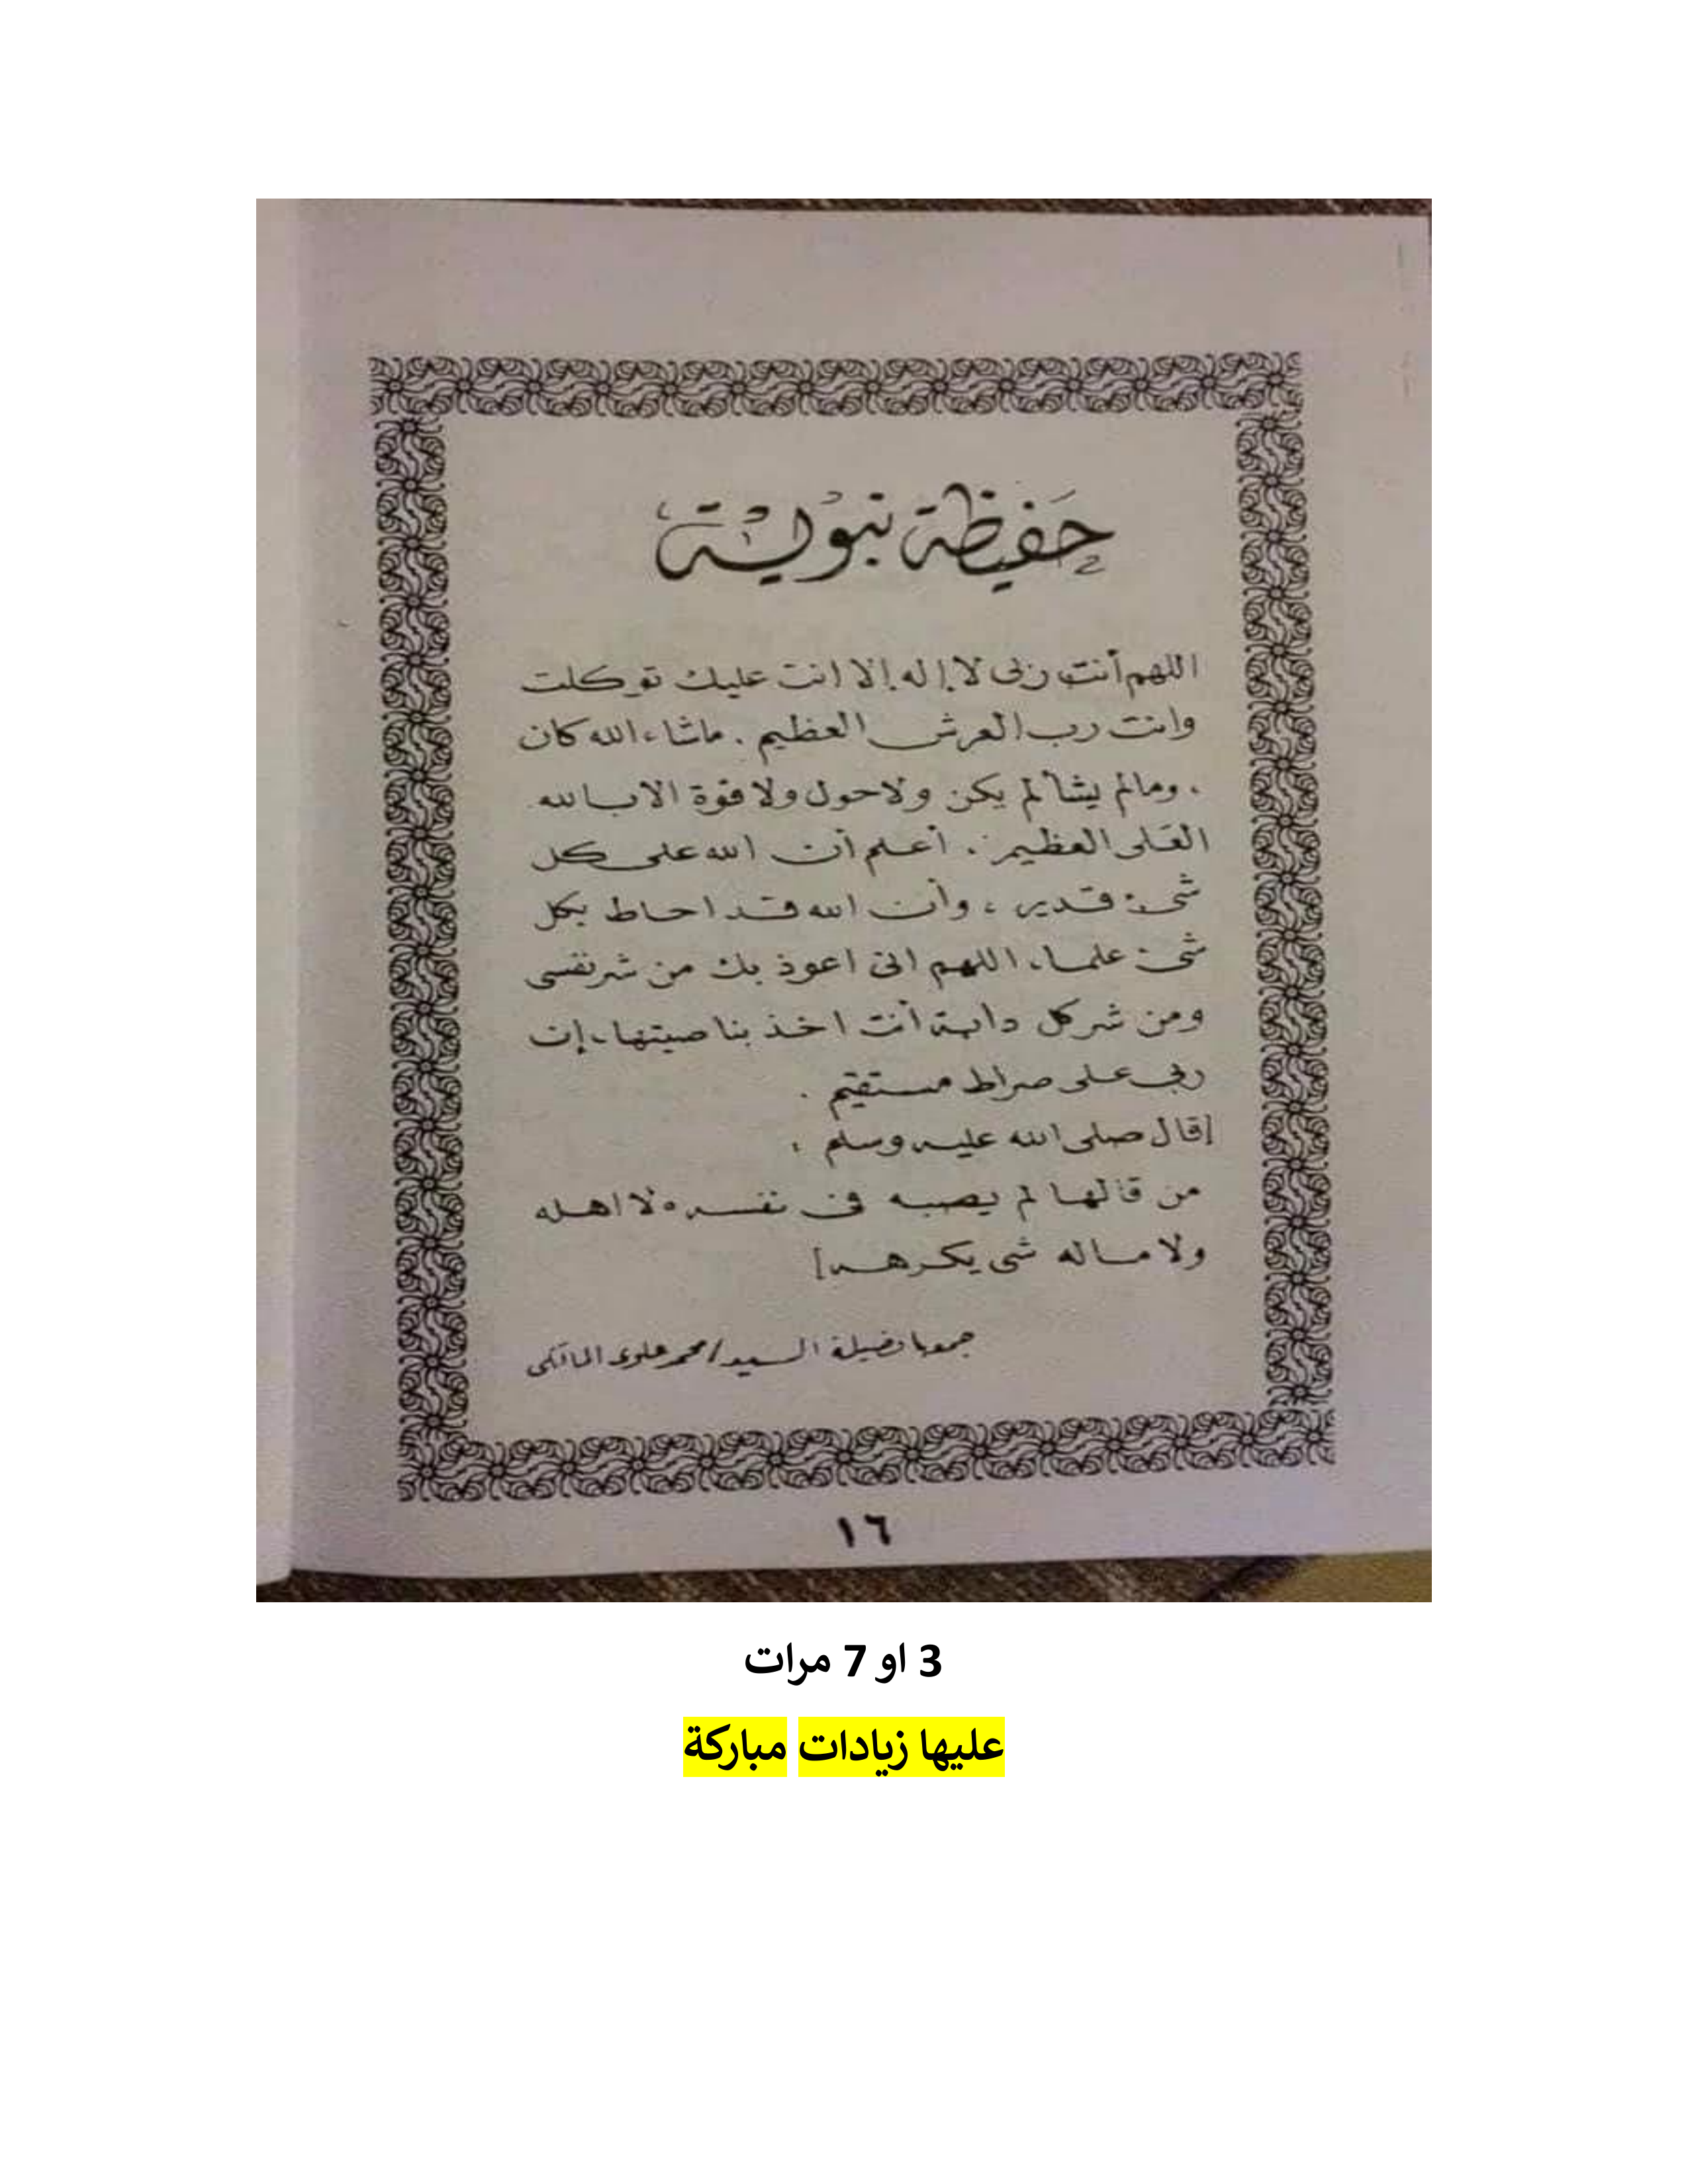 حَفيظة نبويّة
اللهم أنت ربى لا إله إلا انت عليك توكلت
وانت رب العرش العظيم . ماشاء الله كان
، ومالم يشألم يكن ولاحول ولا قوة الا بالله
العَلى العظيم . أعلم أن الله على كل
شئ قدير ، وأن الله قد احاط بكل
شئ علما ، اللهم انى اعوذ بك من شرنفسى
ومن شركل دابة أنت اخذ بناصيتها ، إن
ربي على صراط مستقيم .
[قال صلى الله عليه وسلم ،
من قالها لم يصبه فى نفسه لا اهله
ولا ماله شى يكرهه]
السيد/محمد علوى المالكى
١٦
3 او 7 مرات
عليها زيادات مباركة